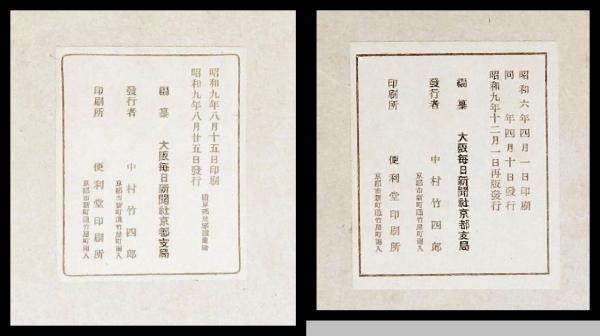 昭和九年八月十五日印刷
昭和九年八月廿五日發行
編纂 大阪毎日新聞社京都支局
發行者 中村竹四郎
京都市新町通竹屋町南入
印刷所 便利堂印刷所
京都市新町通竹屋町南入
昭和六年四月一日印刷
同 年四月十日發行
昭和九年十二月一日再版發行
編纂 大阪毎日新聞社京都支局
發行者 中村竹四郎
京都市新町通竹屋町南入
印刷所 便利堂印刷所
京都市新町通竹屋町南入